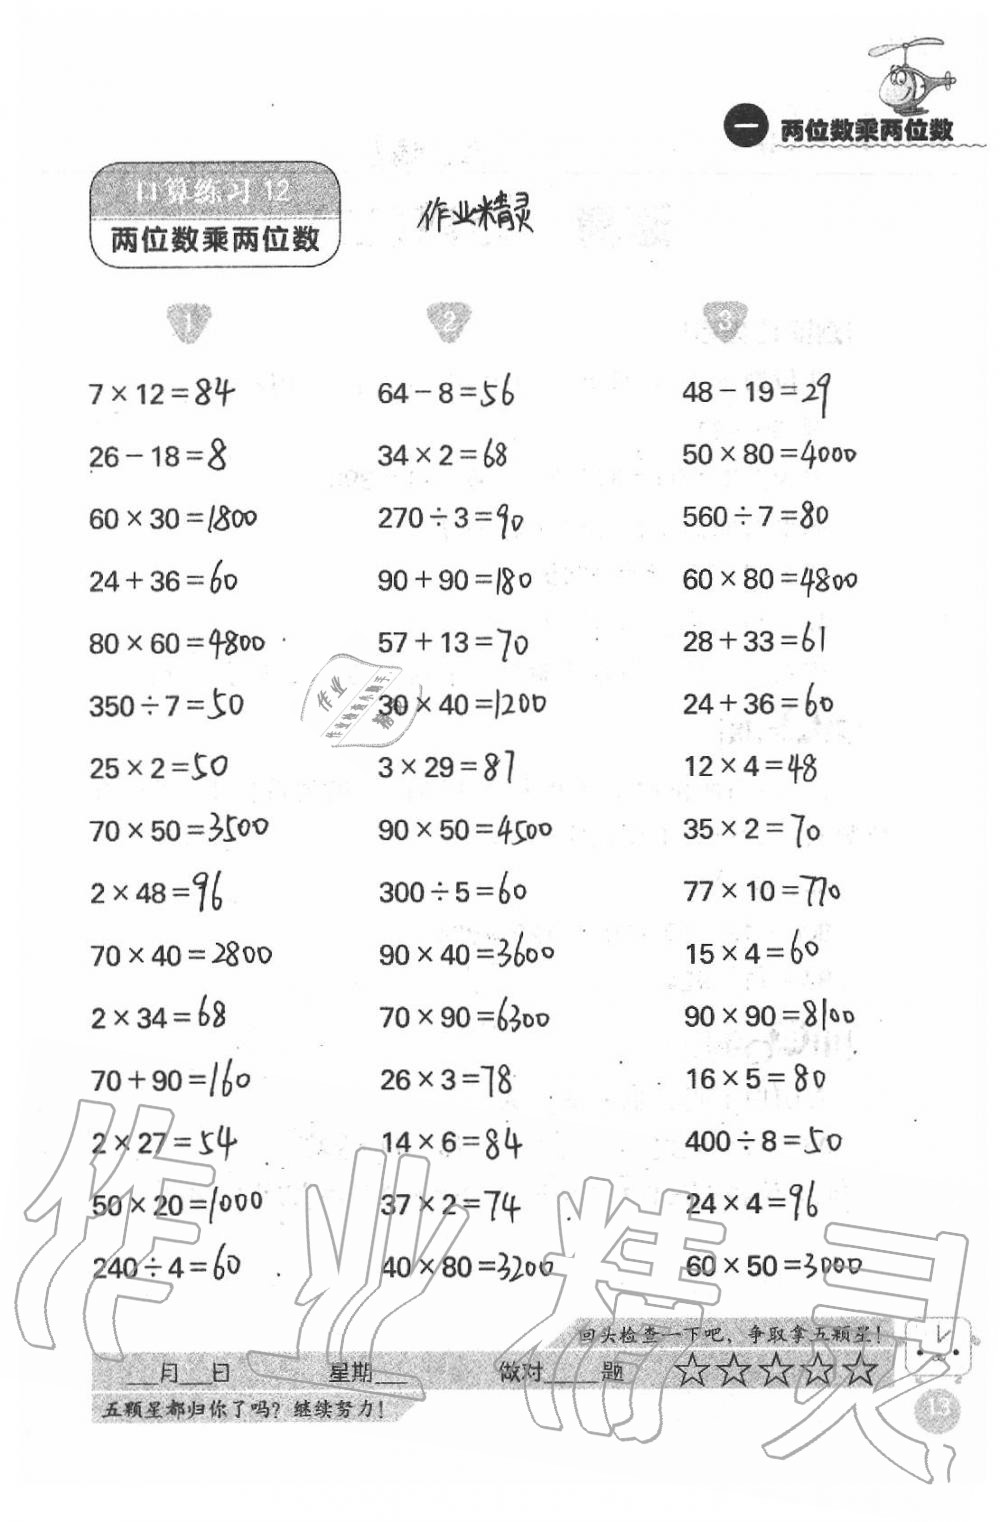 一 两位数乘两位数
口算练习12
两位数乘两位数
作业精灵
1 2 3
7×12=84 64-8=56 48-19=29
26-18=8 34×2=68 50×80=4000
60×30=1800 270÷3=90 560÷7=80
24+36=60 90+90=180 60×80=4800
80×60=4800 57+13=70 28+33=61
350÷7=50 30×40=1200 24+36=60
25×2=50 3×29=87 12×4=48
70×50=3500 90×50=4500 35×2=70
2×48=96 300÷5=60 77×10=770
70×40=2800 90×40=3600 15×4=60
2×34=68 70×90=6300 90×90=8100
70+90=160 26×3=78 16×5=80
2×27=54 14×6=84 400÷8=50
50×20=1000 37×2=74 24×4=96
240÷4=60 40×80=3200 60×50=3000
作业精灵
回头检查一下吧，争取拿五颗星！
__月__日 星期__ 做对____题 ☆☆☆☆☆
五颗星都归你了吗？继续努力！
13